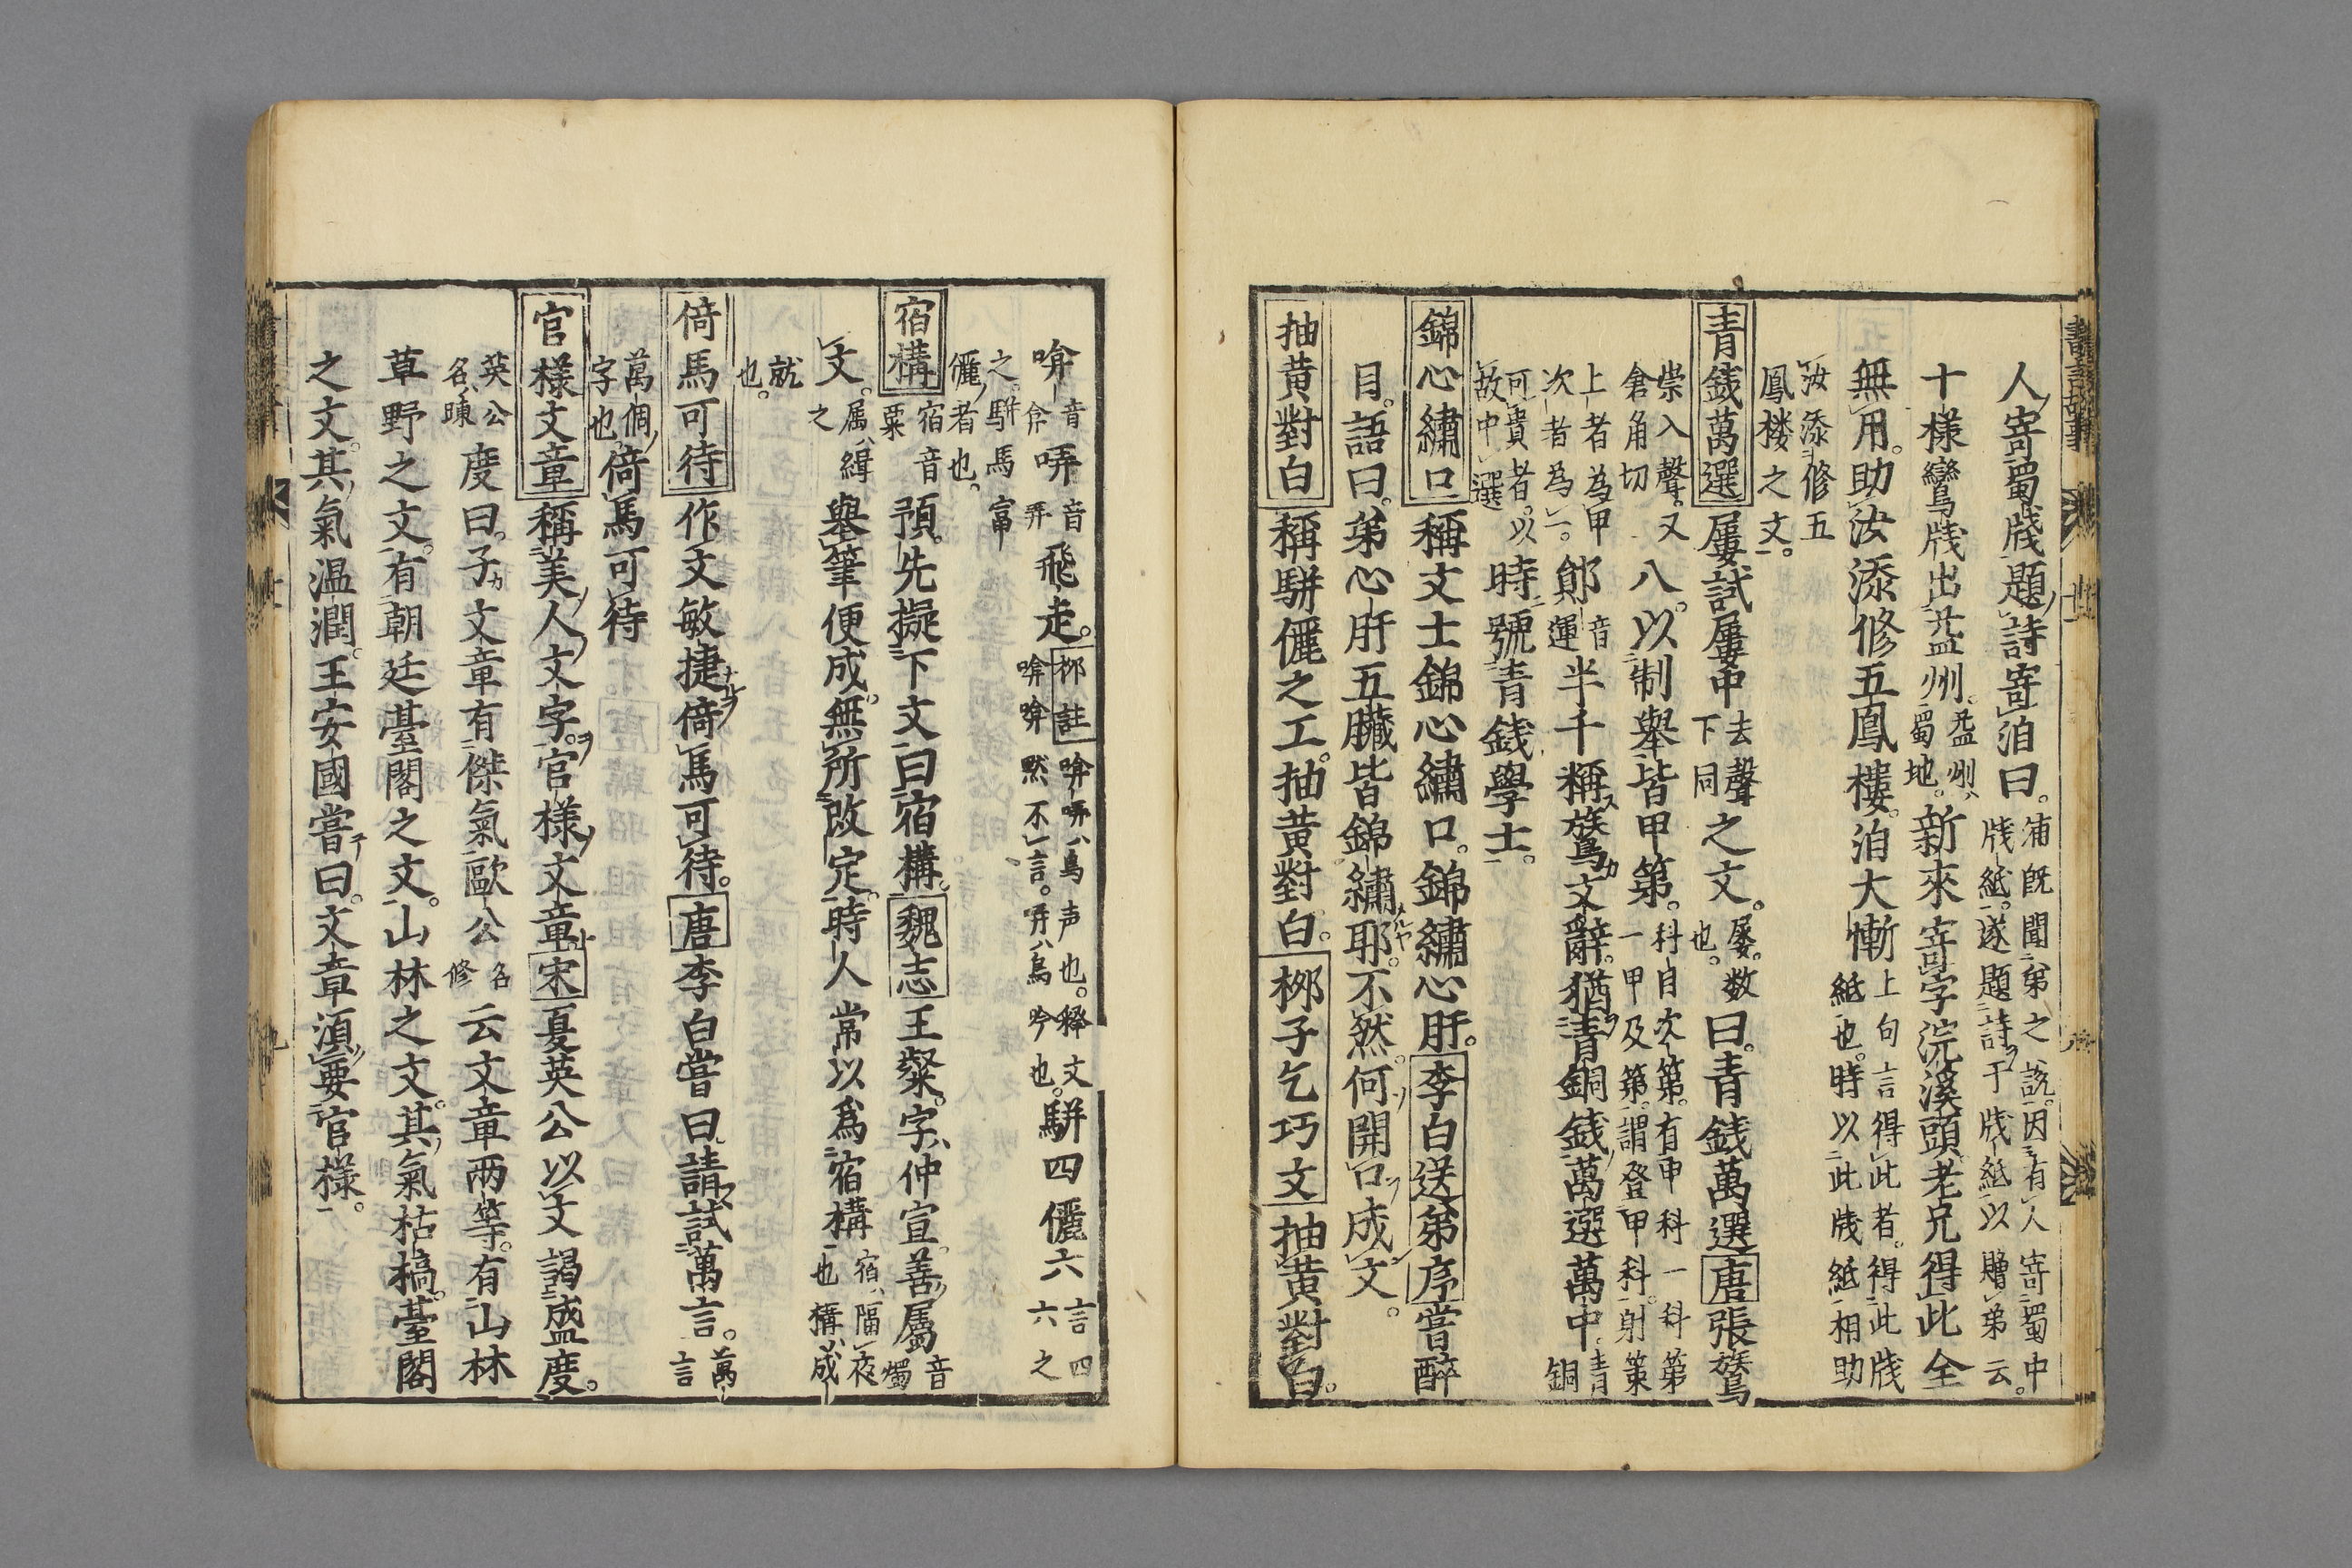 人寄蜀牋題詩寄洎曰。浦既聞弟之説。因有人寄蜀中牋紙。遂題詩于牋紙以贈弟云。
十樣鸞牋出益州。益州蜀地。新來寄字浣溪頭老兄得此全
無用。助汝添修五鳳樓。洎大慚上句言得此者。得此牋紙也。時以此牋紙相助
汝添修五鳳楼之文。
青銭萬選 屢試屢中去聲下同之文。屡。数也。曰。青銭萬選唐張鷟
崇入聲。又倉角切八。以制舉皆甲第。科自次第。有甲科一科第一甲及第。謂登甲科。射策第
上者為甲次者為一。郧音運半千稱鷟文辭。猶青銅銭萬選萬中。青銅
可貴者。以故中選時號青銭學士。
錦心繡口 稱文士錦心繡口。錦繡心肝。李白送弟序嘗醉
目。語曰。弟心肝五臟皆錦繡耶。不然。何開口成文。
抽黄對白 稱駢儷之工。抽黄對白。桞子乞巧文抽黄對白。
啽音弇哢音弄飛走。桞註啽哢ハ鳥声也。释文啽啽黙不言。哢ハ鳥吟也。駢四儷六言四六之
之。駢馬儷者也。
宿構宿音粟預先擬下文曰宿構。魏志王粲。字仲宣。善屬音燭
文。属ハ緝之舉筆便成。無所改定。時人常以爲宿構宿ハ隔夜也構ハ成
就也。
倚馬可待 作文敏捷倚馬可待。唐李白嘗曰請試萬言。萬言
萬個字也倚馬可待
官樣文章 稱美人文字。官樣文章宋夏英公以文謁盛度。
英公名ハ竦度曰。子文章有傑氣歐公名修云文章兩等。有山林
草野之文。有朝廷臺閣之文。山林之文。其氣枯槁。臺閣
之文。其氣温潤。王安國嘗曰。文章湏要官樣。